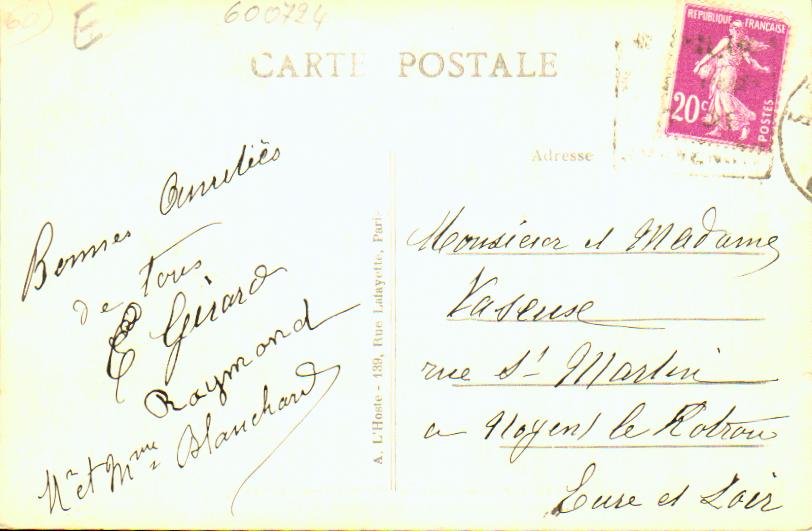 60
E
600724
CARTE POSTALE
REPUBLIQUE FRANÇAISE
20c
POSTES
Adresse
Bonnes Amitiés
de tous
E Girard
Raymond
Mr et Mme Blanchard
A. L'Hoste - 139, Rue Lafayette, Paris-
Monsieur et Madame
Vaseuse
rue St Martin
a Nogent le Rotrou
Eure et Loir